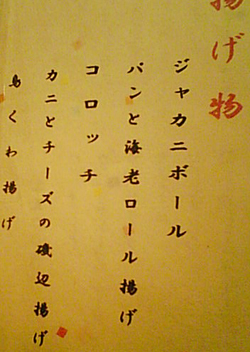 揚げ物
ジャカニボール
パンと海老ロール揚げ
コロッチ
カニとチーズの磯辺揚げ
鳥くわ揚げ